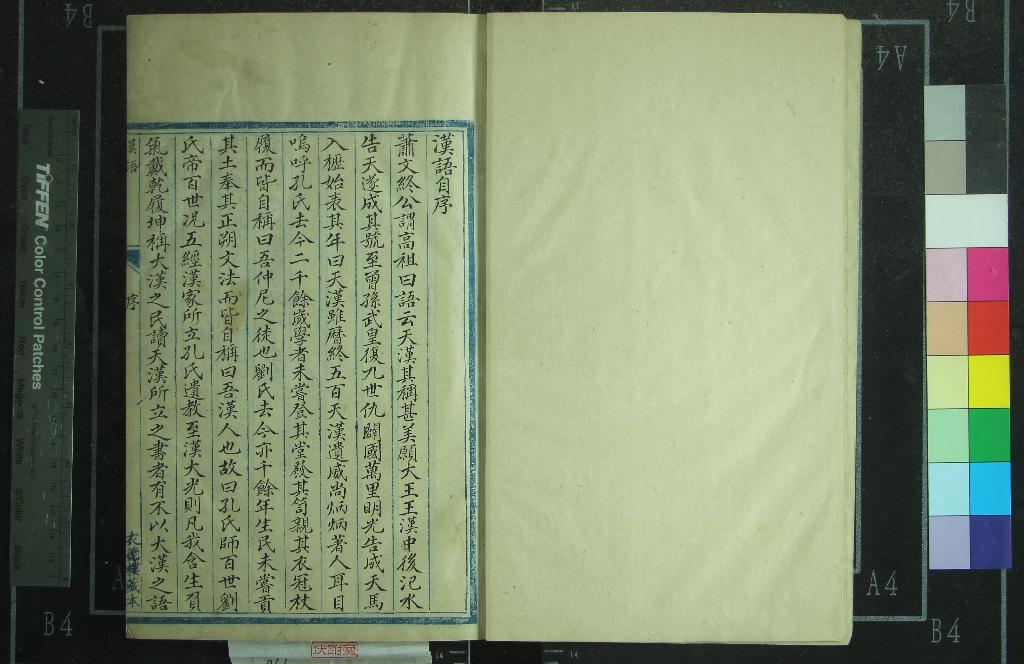 漢語自序
蕭文終公謂高祖曰語云天漢其稱甚美願大王王漢中後汜水
告天遂成其號至曾孫武皇復九世仇闢國萬里明光告成天馬
入櫪始表其年曰天漢雖曆終五百天漢遺威尚炳炳著人耳目
嗚呼孔氏去今二千餘歲學者未嘗登其堂發其笥親其衣冠杖
履而皆自稱曰吾仲尼之徒也劉氏去今亦千餘年生民未嘗貢
其土奉其正朔文法而皆自稱曰吾漢人也故曰孔氏師百世劉
氏帝百世况五經漢家所立孔氏遺教至漢大光則凡我含生負
氣戴乾履坤稱大漢之民讀天漢所立之書者有不以大漢之語
漢語
序
衣德樓藏本
TIFFEN Color Control Patches
B4
B4
A4
A4
B4
B4